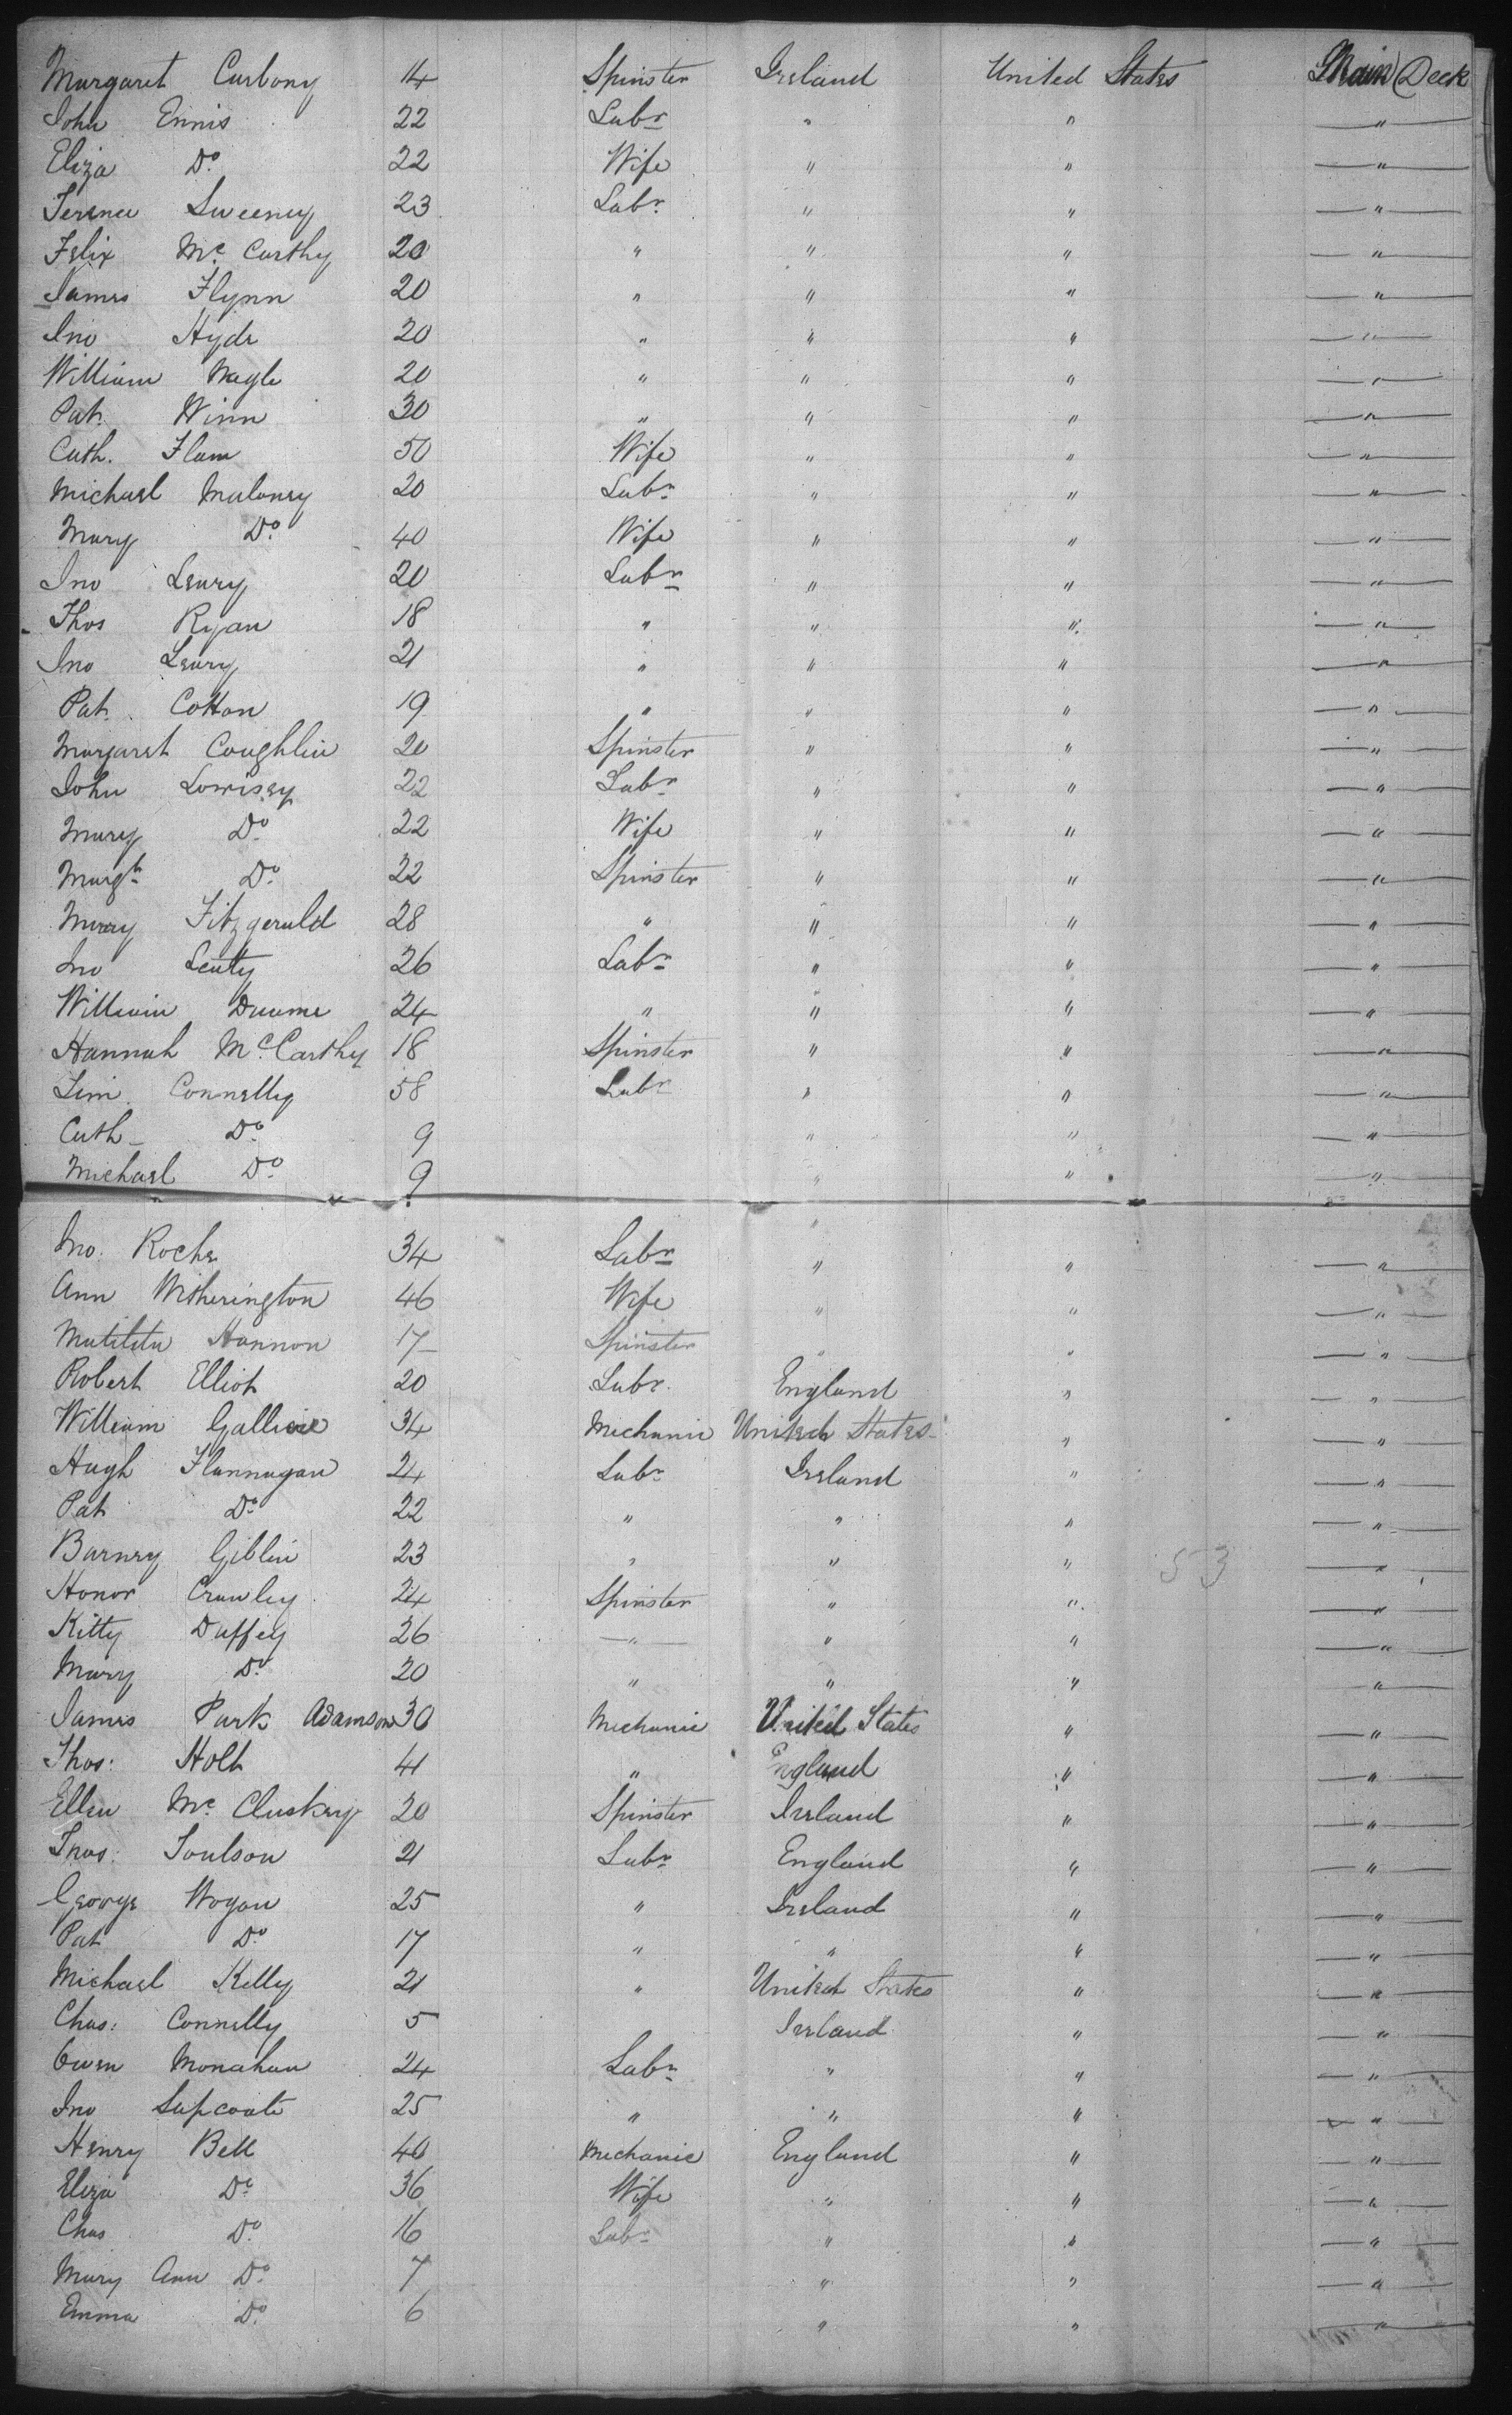 Margaret Carbony 14 Spinster Ireland United States Main Deck
John Ennis 22 Labr " " — " —
Eliza Do 22 Wife " " — " —
Terence Sweeney 23 Labr " " — " —
Felix Mc Carthy 20 " " " — " —
James Flynn 20 " " " — " —
Jno Hyde 20 " " " — " —
William Nagle 20 " " " — " —
Pat. Winn 30 " " " — " —
Cath. Flam 50 Wife " " — " —
Michael Maloney 20 Labr " " — " —
Mary Do 40 Wife " " — " —
Jno Leary 20 Labr " " — " —
Thos Ryan 18 " " " — " —
Jno Leary 21 " " " — " —
Pat. Cotton 19 " " " — " —
Margaret Coughlin 20 Spinster " " — " —
John Lorrisey 22 Labr " " — " —
Mary Do 22 Wife " " — " —
Margt Do 22 Spinster " " — " —
Mary Fitzgerald 28 " " " — " —
Jno Leuty 26 Labr " " — " —
William Duame 24 " " " — " —
Hannah McCarthy 18 Spinster " " — " —
Tim. Connelly 58 Labr " " — " —
Cath Do 9 " " — " —
Michael Do 9 " " — " —
Jno. Roche 34 Labr " " — " —
Ann Witherington 46 Wife " " — " —
Matilda Hannon 17 Spinster " " — " —
Robert Elliot 20 Labr. England " — " —
William 34 Mechanic United States " — " —
Hugh Flannagan 24 Labr Ireland " — " —
Pat Do 22 " " " — " —
Barney Giblin 23 " " " 53 — " —
Honor Crawley 24 Spinster " " — " —
Kitty Duffey 26 — " — " " — " —
Mary Do 20 " " " — " —
James Park Adamson 30 Mechanic United States " — " —
Thos: Holt 41 " England " — " —
Ellen Mc Cluskey 20 Spinster Ireland " — " —
Thos: Toulson 21 Labr England " — " —
George Wogan 25 " Ireland " — " —
Pat Do 17 " " " — " —
Michael Kelly 21 " United States " — " —
Chas: Connelly 5 Ireland " — " —
Owen Monahan 24 Labr " " — " —
Jno Sapcoate 25 " " " — " —
Henry Bell 40 Mechanic England " — " —
Eliza Do 36 Wife " " — " —
Chas Do 16 Labr " " — " —
Mary Ann Do 7 " " — " —
Emma Do 6 " " — " —